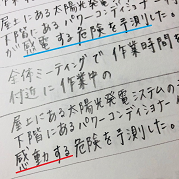 屋上にある太陽光発電
下階にあるパワーコンディショナー
が感電する危険を予測した。
全体ミーティングで作業時間を
付近に作業中の
屋上にある太陽光発電システムの
下階にあるパワーコンディショナー
感動する危険を予測した。